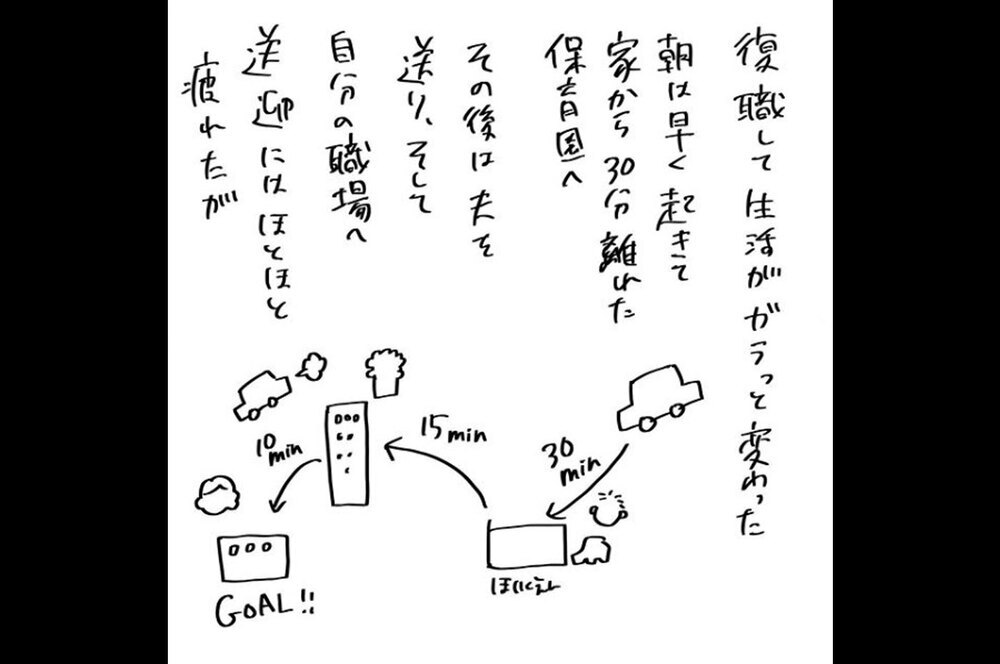 復職して生活がガラっと変わった
朝は早く起きて
家から30分離れた
保育園へ
その後は夫を
送り、そして
自分の職場へ
送迎にはほとほと
疲れたが
30min
15min
10min
ほいくえん
GOAL!!